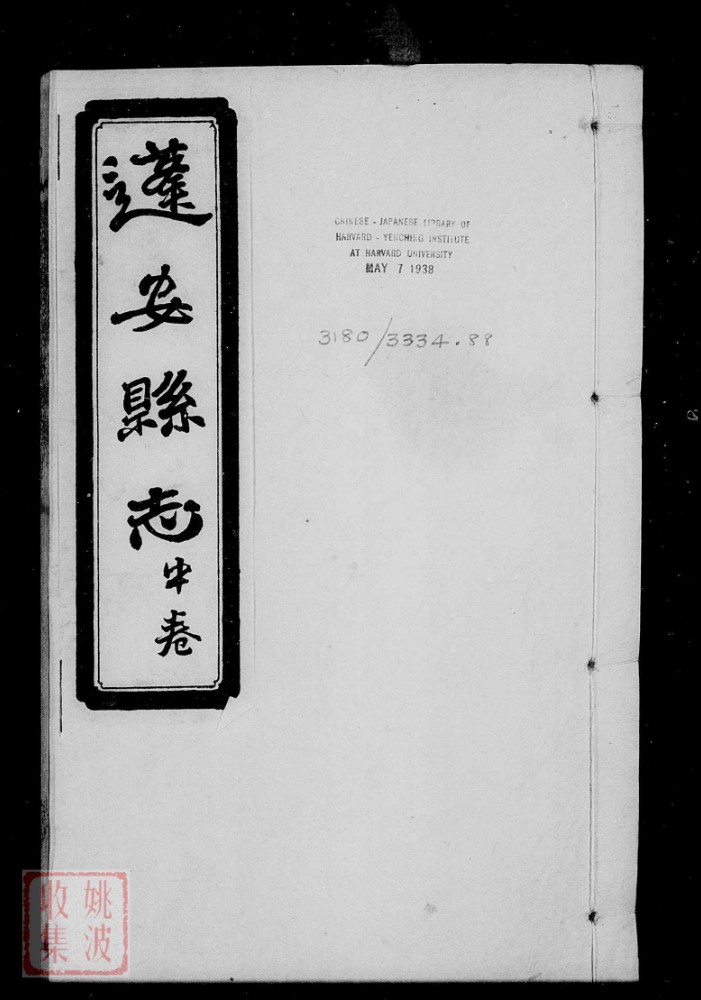 蓬安縣志
中卷
CHINESE - JAPANESE LIBRARY OF
HARVARD - YENCHING INSTITUTE
AT HARVARD UNIVERSITY
MAY 7 1938
3180/3334.88
姚波
收集